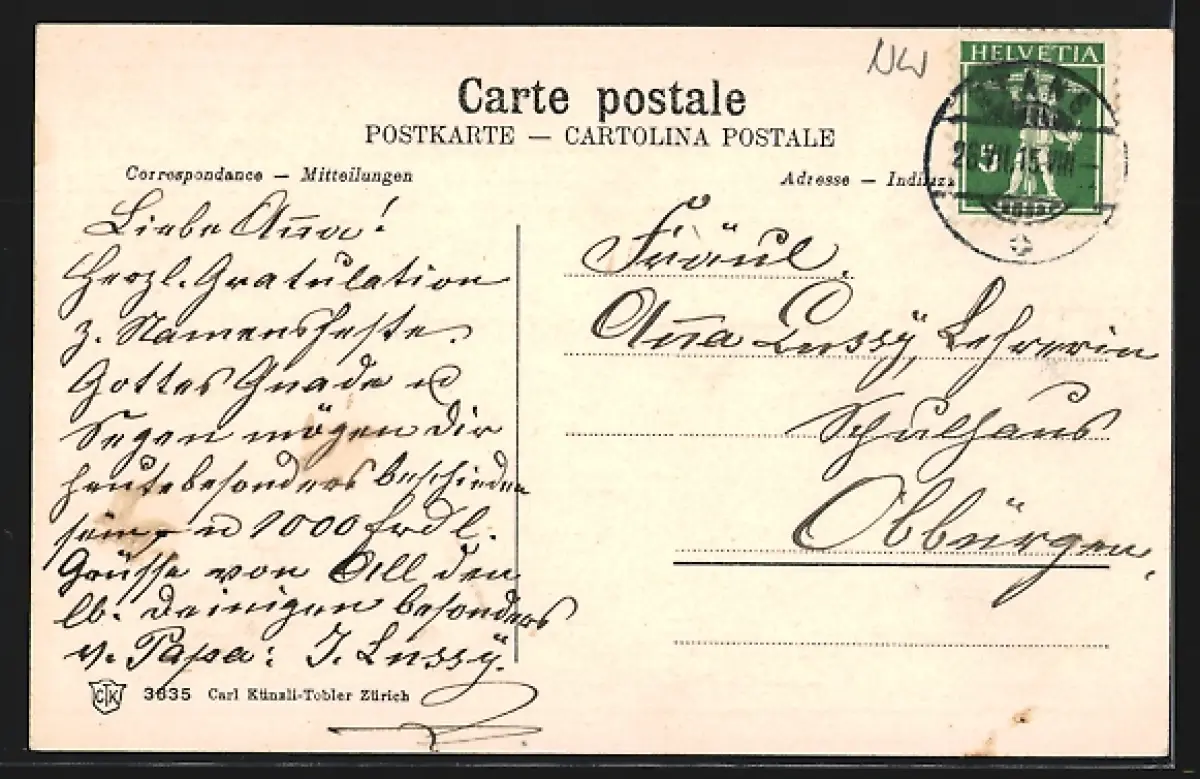 NW
HELVETIA
Carte postale
POSTKARTE — CARTOLINA POSTALE
Correspondance — Mitteilungen
Adresse — Indirizz
STANS
26.VII.15.VIII
5
Liebe Anna!
Herzl. Gratulation
z. Namensfeste.
Gottes Gnade u
Segen mögen Dir
heute besonders beschieden
sein u 1000 frdl.
Grüsse von All den
lb. Deinigen besonders
v. Papa: J. Lussÿ.
Fräul.
Anna Lussÿ, Lehrerin
Schulhaus
Obbürgen,
CTK 3635 Carl Künzli-Tobler Zürich